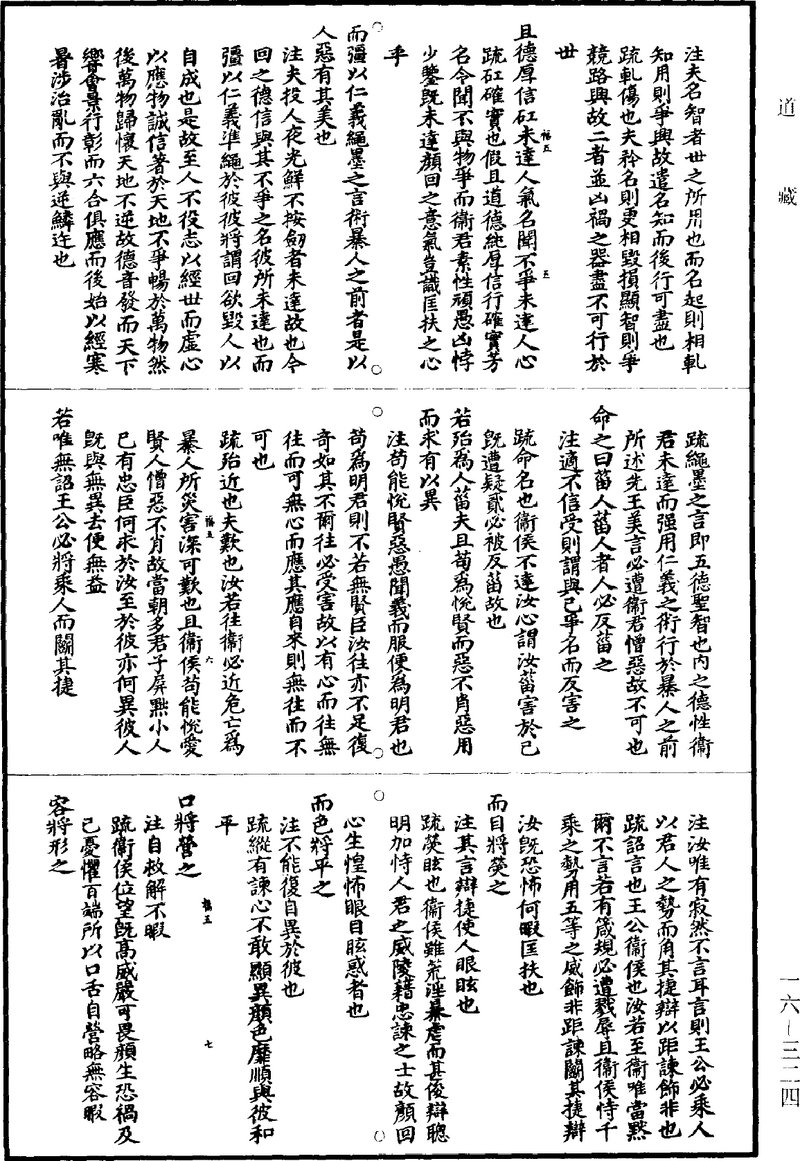 道藏
注夫名智者世之所用也而名起則相軋
知用則爭興故遣名知而後行可盡也
疏軋傷也夫矜名則更相毀損顯智則爭
競路興故二者並凶禍之器盡不可行於
世
且德厚信矼未達人氣名聞不爭未達人心
疏矼確實也假且道德純厚信行確實芳
名令聞不與物爭而衞君素性頑愚凶悖
少鑒旣未達顔回之意氣豈識匡扶之心
乎
而彊以仁義繩墨之言術暴人之前者是以
人惡有其美也
注夫投人夜光鮮不按劒者未達故也今
回之德信與其不爭之名彼所未達也而
彊以仁義準繩於彼彼將謂回欲毀人以
自成也是故至人不役志以經世而虛心
以應物誠信著於天地不爭暢於萬物然
後萬物歸懷天地不逆故德音發而天下
響會景行彰而六合俱應而後始以經寒
暑涉治亂而不與逆鱗迕也
疏繩墨之言即五德聖智也内之德性衞
君未達而强用仁義之術行於暴人之前
所述先王美言必遭衞君憎惡故不可也
命之曰菑人菑人者人必反菑之
注適不信受則謂與己爭名而反害之
疏命名也衞侯不達汝心謂汝菑害於己
旣遭疑貳必被反菑故也
若殆爲人菑夫且苟爲悅賢而惡不肖惡用
而求有以異
注苟能悅賢惡愚聞義而服便爲明君也
苟爲明君則不若無賢臣汝往亦不足復
奇如其不爾往必受害故以有心而往無
往而可無心而應其應自來則無往而不
可也
疏殆近也夫歎也汝若往衞必近危亡爲
暴人所災害深可歎也且衞侯苟能悅愛
賢人憎惡不肖故當朝多君子屏黜小人
已有忠臣何求於汝至於彼亦何異彼人
旣與無異去便無益
若唯無詔王公必將乘人而鬭其捷
注汝唯有寂然不言耳言則王公必乘人
以君人之勢而角其捷辯以距諫飾非也
疏詔言也王公衞侯也汝若至衞唯當默
爾不言若有箴規必遭戮辱且衞侯恃千
乘之勢用五等之威飾非距諫鬭其捷辯
汝旣恐怖何暇匡扶也
而目將熒之
注其言辯捷使人眼眩也
疏熒眩也衞侯雖荒淫暴虐而甚俊辯聰
明加恃人君之威陵藉忠諫之士故顔回
心生惶怖眼目眩惑者也
而色將平之
注不能復自異於彼也
疏縱有諫心不敢顯異顔色靡順與彼和
平
口將營之
注自救解不暇
疏衞侯位望旣高威嚴可畏顔生恐禍及
己憂懼百端所以口舌自營略無容暇
容將形之
一六—三二四